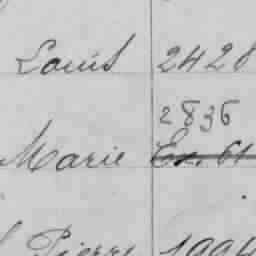 Louis 2428
2836
Marie Ex. 61
Pierre 1994